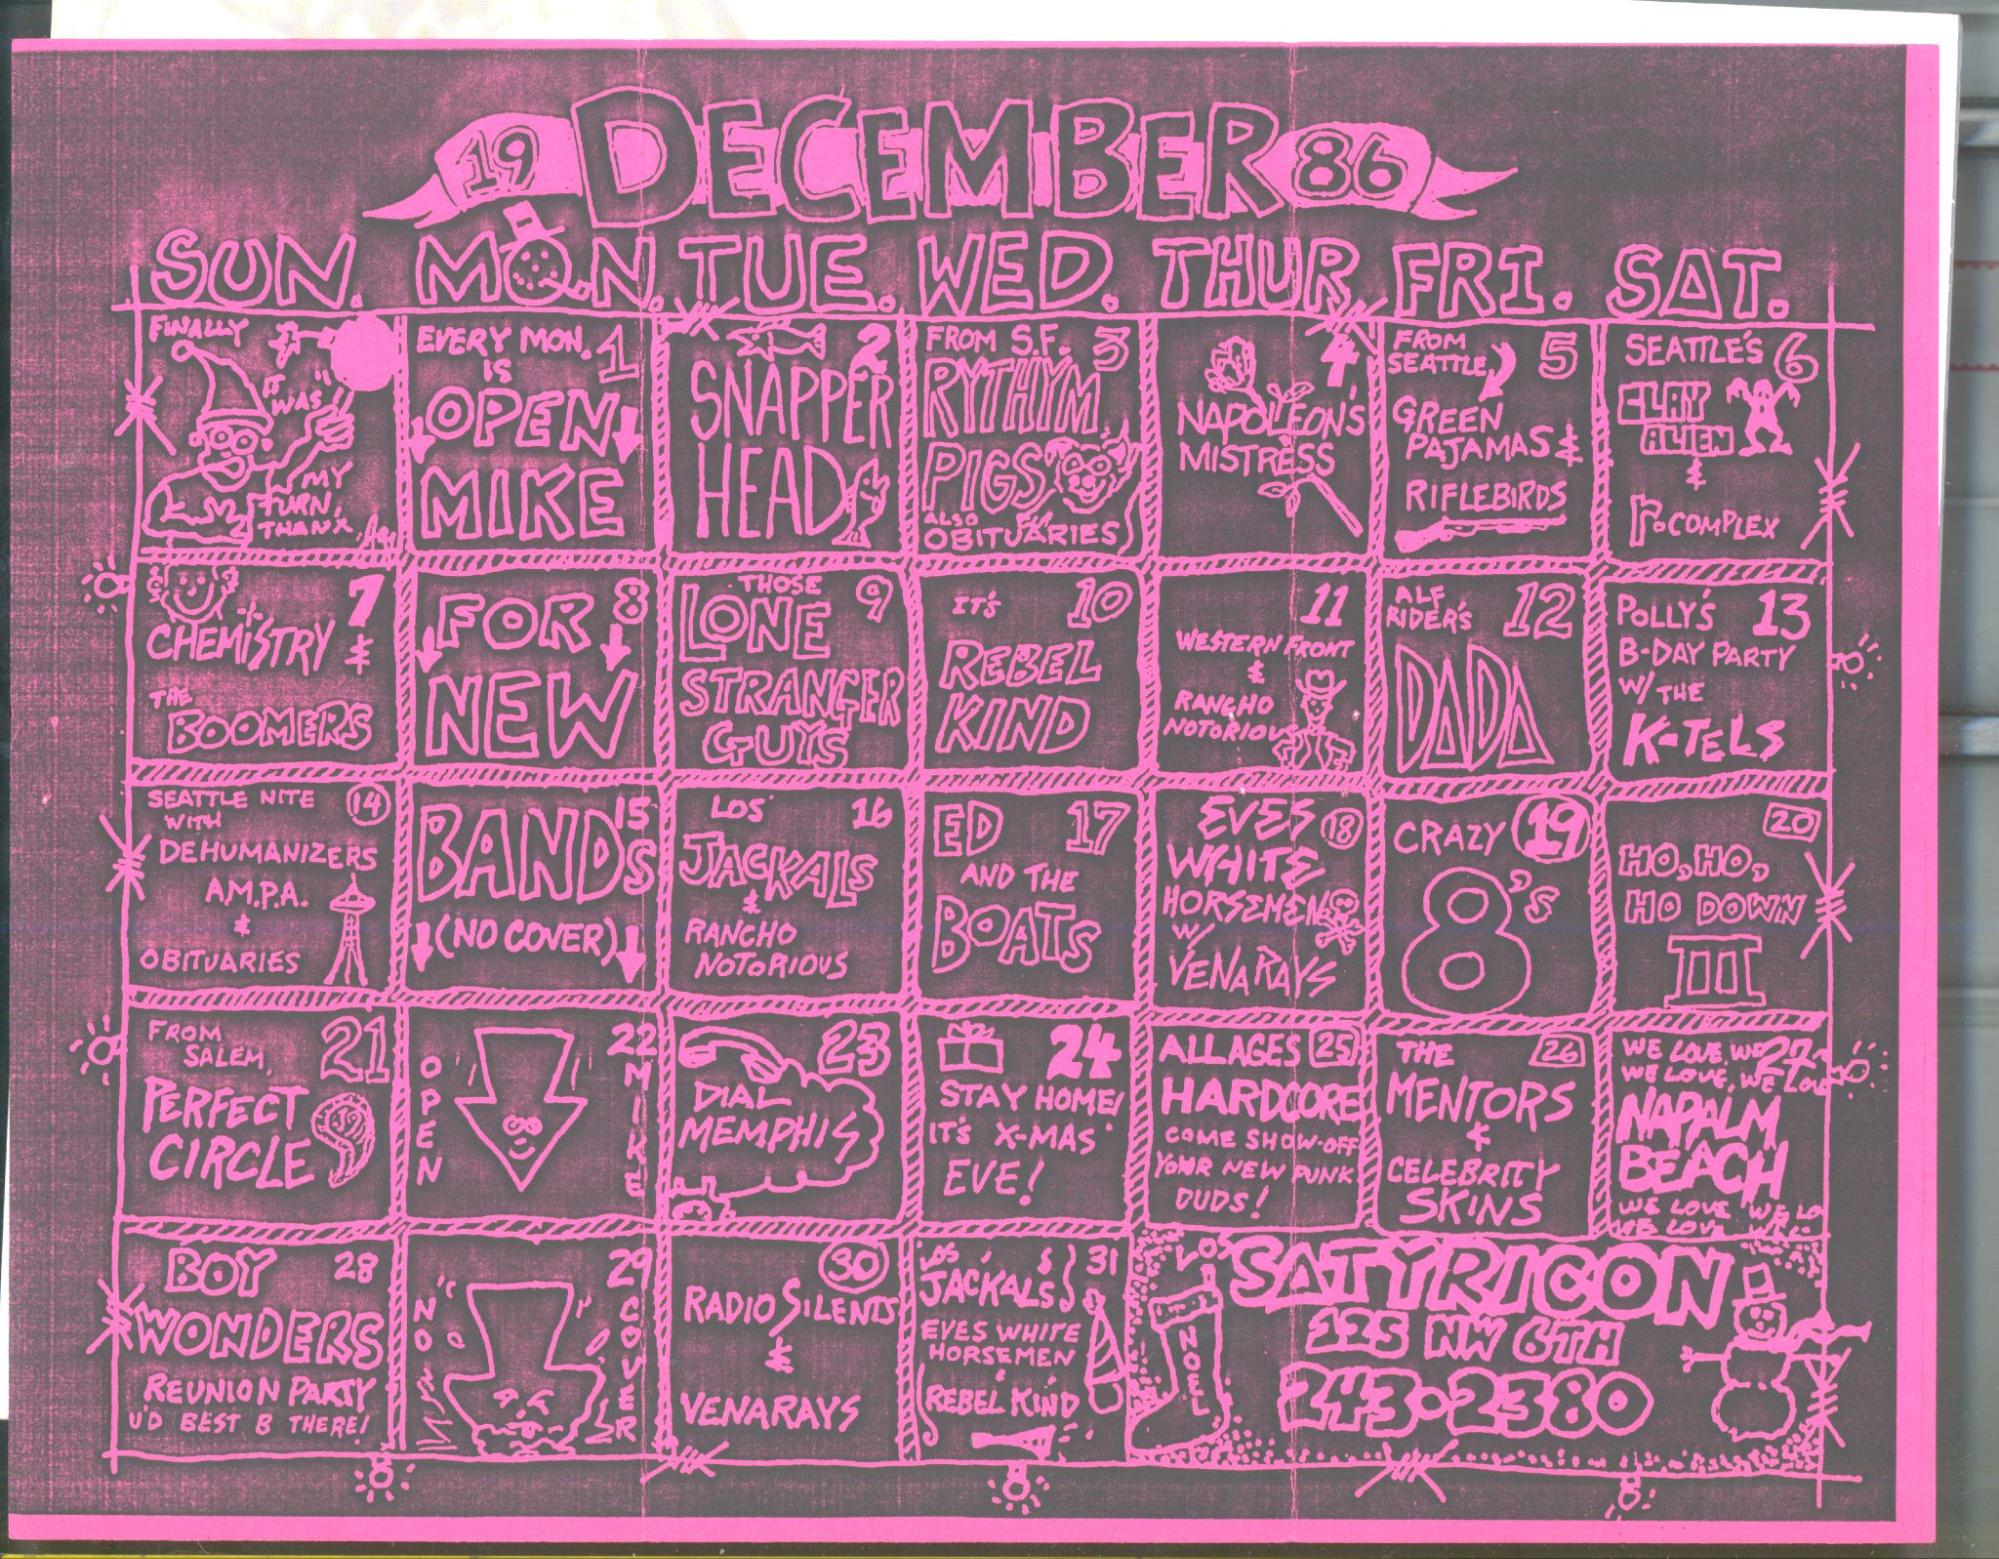 19 DECEMBER 86
SUN. MON. TUE. WED. THUR. FRI. SAT.
FINALLY
IT
WAS
MY
TURN,
THANX
EVERY MON. 1
IS
OPEN
MIKE
2
SNAPPER
HEAD
FROM S.F. 3
RYTHYM
PIGS
ALSO
OBITUARIES
4
NAPOLEON'S
MISTRESS
FROM 5
SEATTLE
GREEN
PAJAMAS &
RIFLEBIRDS
SEATTLE'S 6
CLAY
ALIEN
&
r.COMPLEX
7
CHEMISTRY &
THE
BOOMERS
8
FOR
NEW
THOSE 9
LONE
STRANGER
GUYS
IT'S 10
REBEL
KIND
11
WESTERN FRONT
&
RANCHO
NOTORIOU
ALF 12
RIDER'S
DADA
POLLY'S 13
B-DAY PARTY
W/ THE
K-TELS
SEATTLE NITE 14
WITH
DEHUMANIZERS
A.M.P.A.
&
OBITUARIES
15
BANDS
(NO COVER)
LOS 16
JACKALS
&
RANCHO
NOTORIOUS
ED 17
AND THE
BOATS
EVES 18
WHITE
HORSEMEN
W/
VENARAYS
CRAZY 19
8's
20
HO, HO,
HO DOWN
III
FROM 21
SALEM,
PERFECT
CIRCLE
22
OPEN
MIKE
23
DIAL
MEMPHIS
24
STAY HOME!
IT'S X-MAS
EVE!
ALL AGES 25
HARDCORE
COME SHOW-OFF
YOUR NEW PUNK
DUDS!
THE 26
MENTORS
&
CELEBRITY
SKINS
WE LOVE, WE 27
WE LOVE, WE LOVE
NAPALM
BEACH
WE LOVE WE LO
WE LOVE
BOY 28
WONDERS
REUNION PARTY
U'D BEST B THERE!
29
NO
COVER
30
RADIO SILENTS
&
VENARAYS
LOS 31
JACKALS
EVES WHITE
HORSEMEN
&
REBEL KIND
NOEL
SATYRICON
125 NW 6TH
243-2380